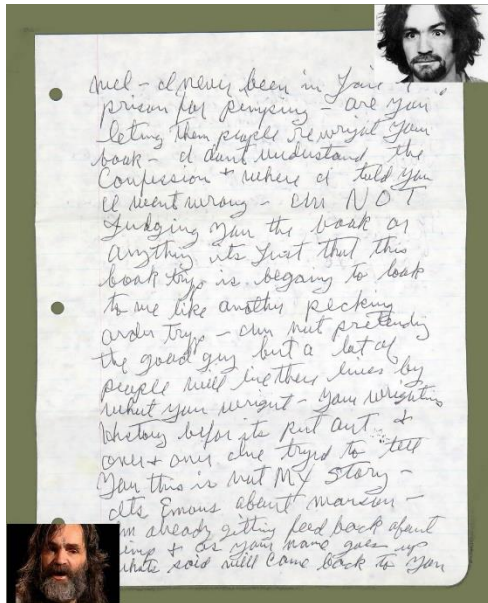 nuel - I never been in Jail
prison for pimping - are you
leting them people rewright your
book - I dont understand the
Confussion + where I told you
I went wrong - Im NOT
Judging you the book or
anything its Just that this
book tryp is begaing to look
to me like another pecking
order tryp - Im not pretending
the good guy but a lot of
people will live there lives by
what you wright - your wrighting
history befor its put out &
over + over Ive tryed to tell
you this is not MY Story -
Its Emons about manson -
Im already getting feed back about
& as your name goes up
whats said will come back to you